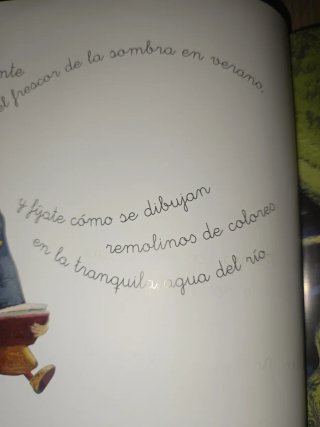 nte
el frescor de la sombra en verano,
y fíjate cómo se dibujan
remolinos de colores
en la tranquila agua del río.